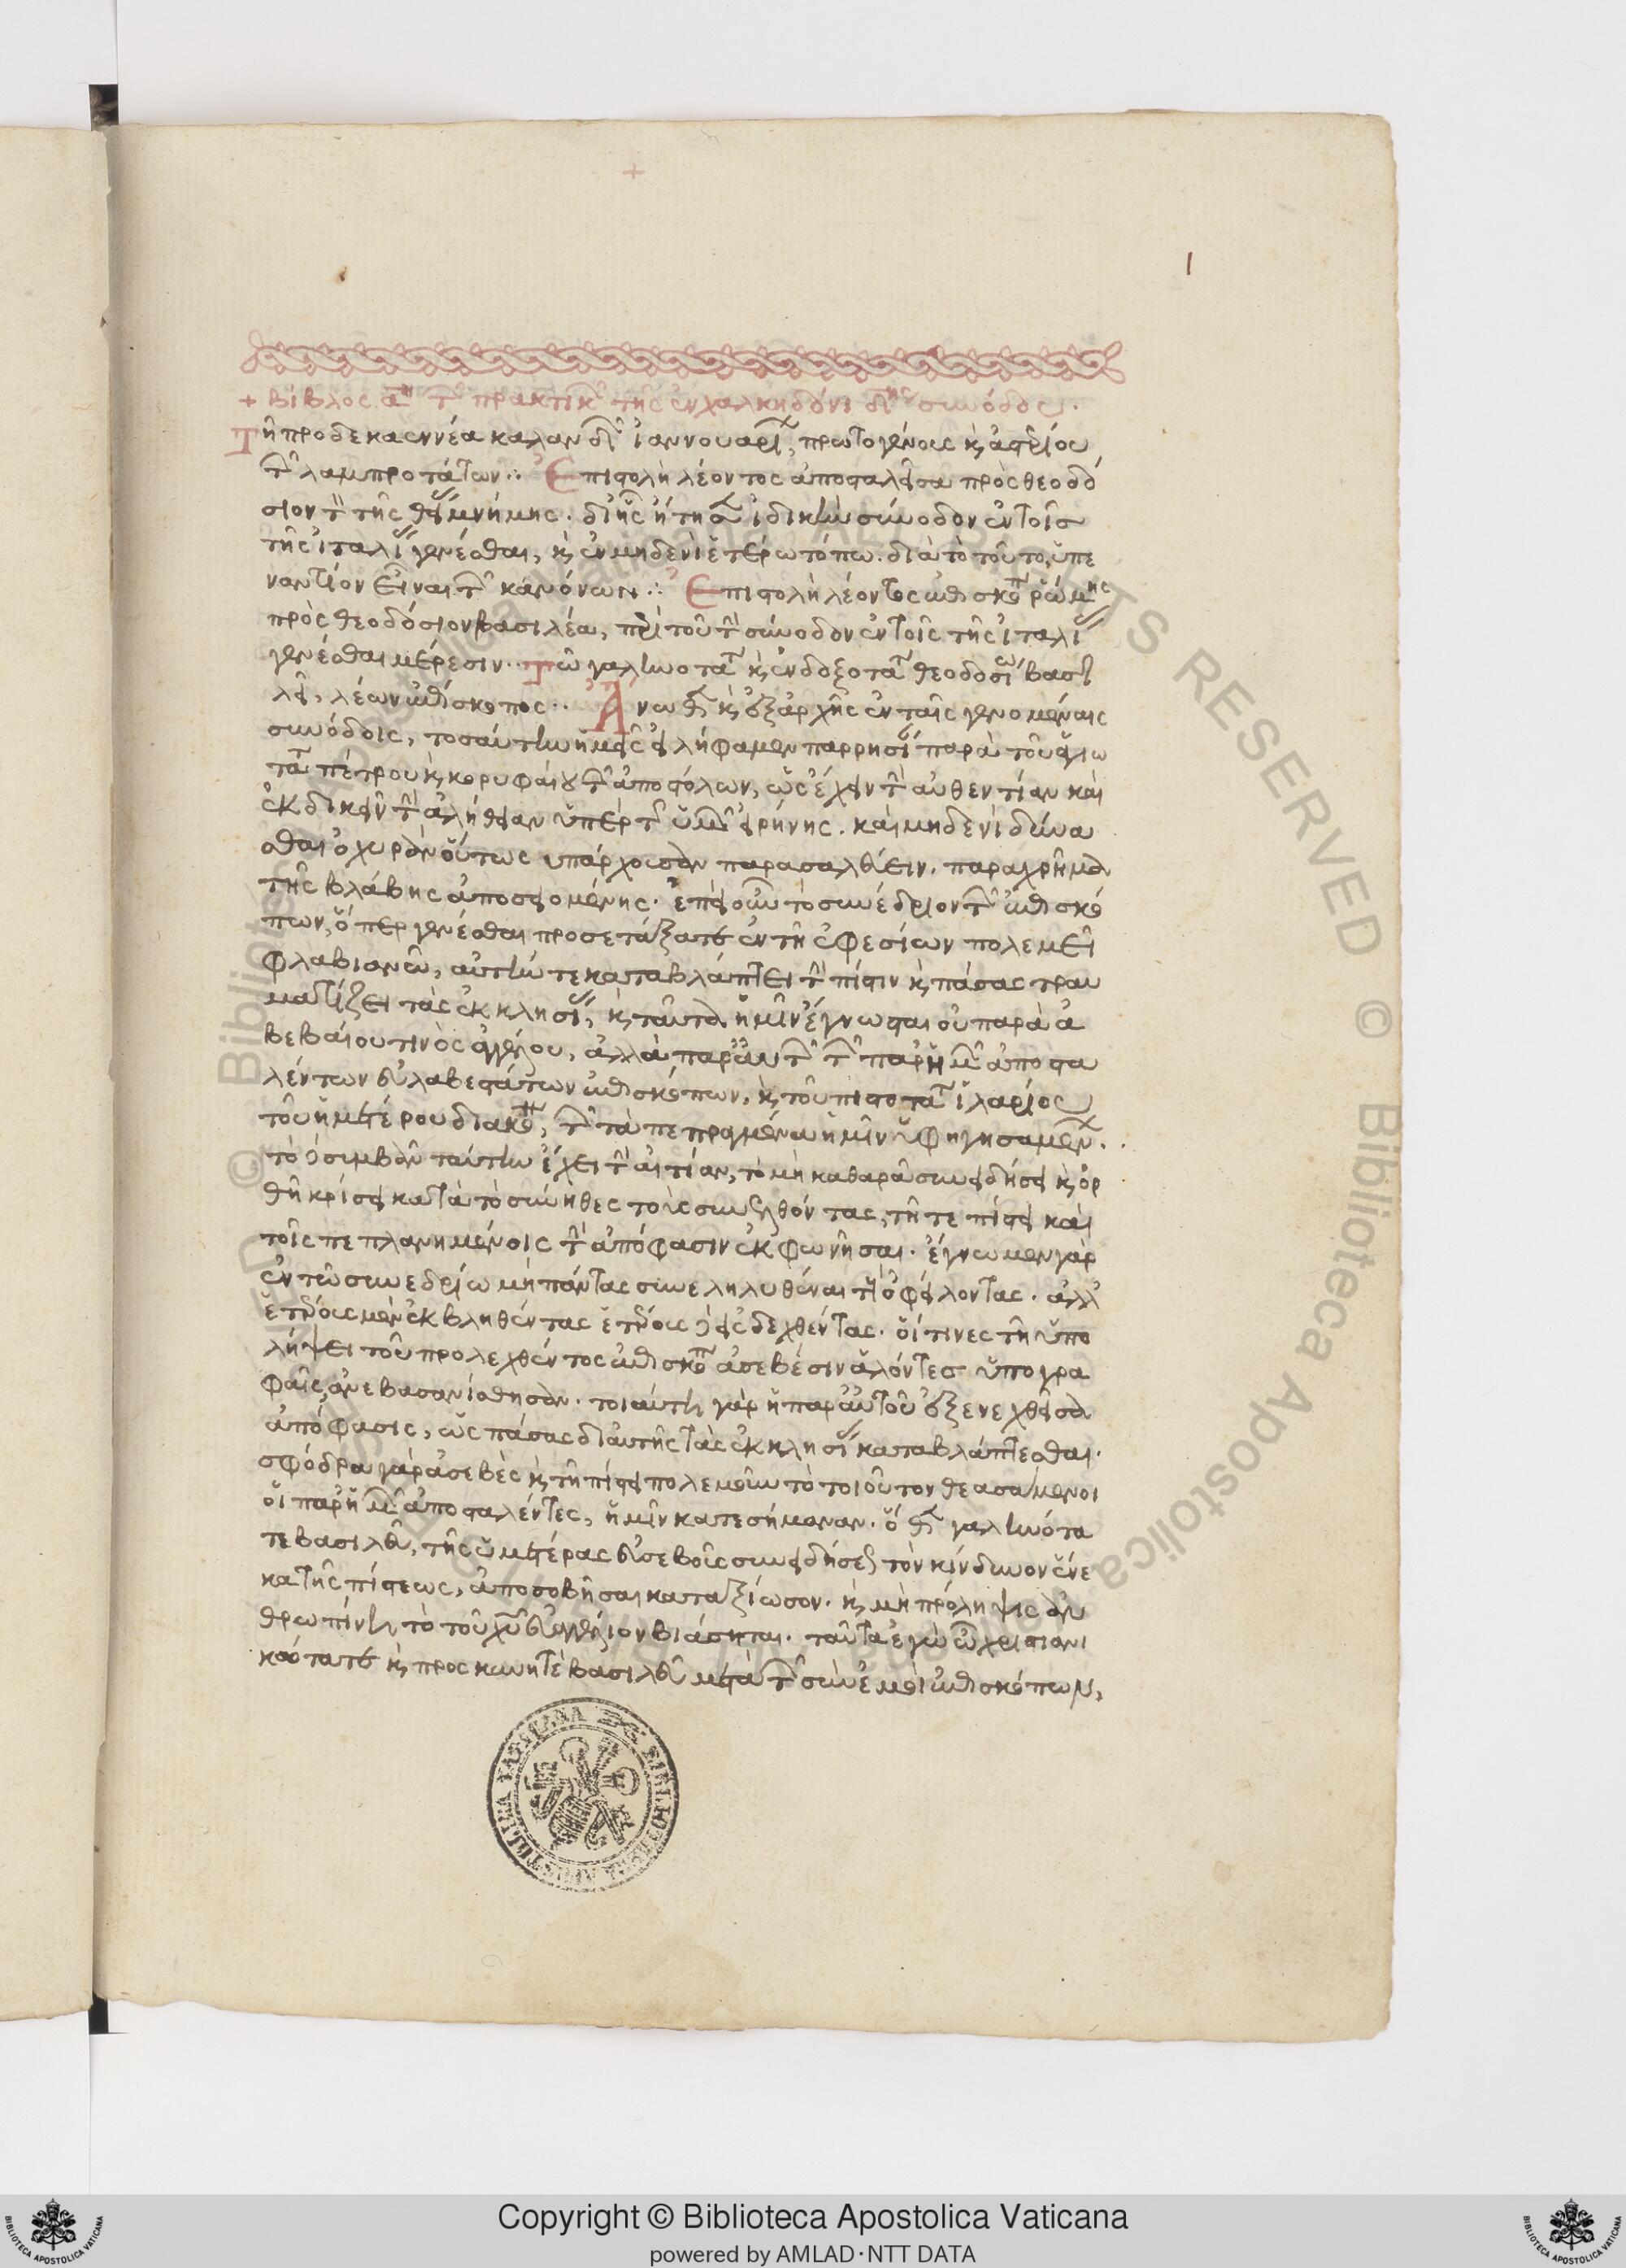 +
1
+ βίβλος α^η τ^ῶν πρακτικ^ῶν τῆς ἐν χαλκηδόνι δ^ης συνόδου.
Τῆ προ δεκαεννέα καλανδῶν ἰαννουαρί, πρωτογένους κ, ἀστερίου
τῶν λαμπροτάτων ∴ Ἐπιστολὴ λέοντος ἀποσταλεῖσα πρὸς θεοδό
σιον τὸν τῆς θείας μνήμης. δι' ἧς ἤτησεν ἰδικὴν σύνοδον ἐν τοῖς
τῆς ἰταλίας γενέσθαι, κ, ἐν μηδενὶ ἑτέρω τόπω. διὰ τὸ τοῦτο ὑπε
ναντίον εἶναι τῶν κανόνων ∴ Ἐπιστολὴ λέοντος ἐπισκόπ ῥώμης
πρὸς θεοδόσιον βασιλέα, περὶ τοῦ τὴν σύνοδον ἐν τοῖς τῆς ἰταλίας
γενέσθαι μέρεσιν ·· Τῶ γαληνοτάτ κ, ἐνδοξοτάτ θεοδοσίω βασι
λεῖ, λέων ἐπίσκοπος ·· Ἄνωθεν κ, ἐξαρχῆς ἐν ταῖς γενομέναις
συνόδοις, τοσαύτην ἡμεῖς εἰλήφαμεν παρρησίας παρὰ τοῦ ἁγιω
τάτ πέτρου κ, κορυφαίου τῶν ἀποστόλων, ὡς ἔχειν τὴν αὐθεντίαν καὶ
ἐκδικεῖν τὴν ἀλήθειαν ὑπὲρ τῆς ὑμῶν εἰρήνης. καὶ μηδενὶ δύνα
σθαι ὀχυρὰν οὕτως ὑπάρχουσαν παρασαλεύειν. παραχρῆμα
τῆς βλάβης ἀποσειομένης. ἐπεὶ οὖν τὸ συνέδριον τῶν ἐπισκό
πων, ὅπερ γενέσθαι προσετάξατε ἐν τῆ ἐφεσίων πολεμεῖ
φλαβιανῶ, αὐτήν τε καταβλάπτει τὴν πίστιν κ, πάσας τραυ
ματίζει τὰς ἐκκλησίας, κ, ταῦτα ἡμῖν ἔγνωσται οὐ παρὰ ἀ
βεβαίου τινὸς ἀγγέλου, ἀλλὰ παρ' αὐτῶν τῶν παρ' ἡμῶν ἀποστα
λέντων εὐλαβεστάτων ἐπισκόπων, κ, τοῦ πιστοτάτ ἱλαρίου
τοῦ ἡμετέρου διακό, τῶν τὰ πεπραγμένα ἡμῖν ὑφηγησαμένων.
τὸ δὲ συμβὰν ταύτην ἔχει τὴν αἰτίαν, τὸ μὴ καθαρᾶ συνειδήσει κ, ὀρ
θῆ κρίσει κατὰ τὸ σύνηθες τοὺς συνελθόντας, τῆ τε πίστει καὶ
τοῖς πεπλανημένοις τὴν ἀπόφασιν ἐκφωνῆσαι. ἔγνωμεν γὰρ
ἐν τῶ συνεδρίω μὴ πάντας συνεληλυθέναι τοὺς ὀφείλοντας. ἀλλ'
ἑτέρους μὲν ἐκβληθέντας ἑτέρους δὲ εἰσδεχθέντας. οἵτινες τῆ ὑπο
λήψει τοῦ προλεχθέντος ἐπισκόπ ἀσεβέσιν ἁλόντες ὑπογρα
φαῖς, ἀνεβασανίσθησαν. τοιαύτη γὰρ ἡ παρ' αὐτοῦ ἐξενεχθεῖσα
ἀπόφασις, ὡς πάσας δι' αὐτῆς τὰς ἐκκλησίας καταβλάπτεσθαι.
σφόδρα γὰρ ἀσεβὲς κ, τῆ πίστει πολεμοῦν τὸ τοιοῦτον θεασάμενοι
οἱ παρ' ἡμῶν ἀποσταλέντες, ἡμῖν κατεσήμαναν. ὅθεν γαληνότα
τε βασιλεῦ, τῆς ὑμετέρας εὐσεβοῦς συνειδήσεως τὸν κίνδυνον ἕνε
κα τῆς πίστεως, ἀποσοβῆσαι καταξίωσον. κ, μὴ πρόληψις ἀν
θρωπίνη τὸ τοῦ χῦ εὐαγγέλιον βιάσηται. ταῦτα ἐγὼ ὦ χριστιανι
κώτατε κ, προσκυνητὲ βασιλεῦ μετὰ τῶν σὺν ἐμοὶ ἐπισκόπων,
© Biblioteca Apostolica Vaticana
Copyright © Biblioteca Apostolica Vaticana
powered by AMLAD·NTT DATA